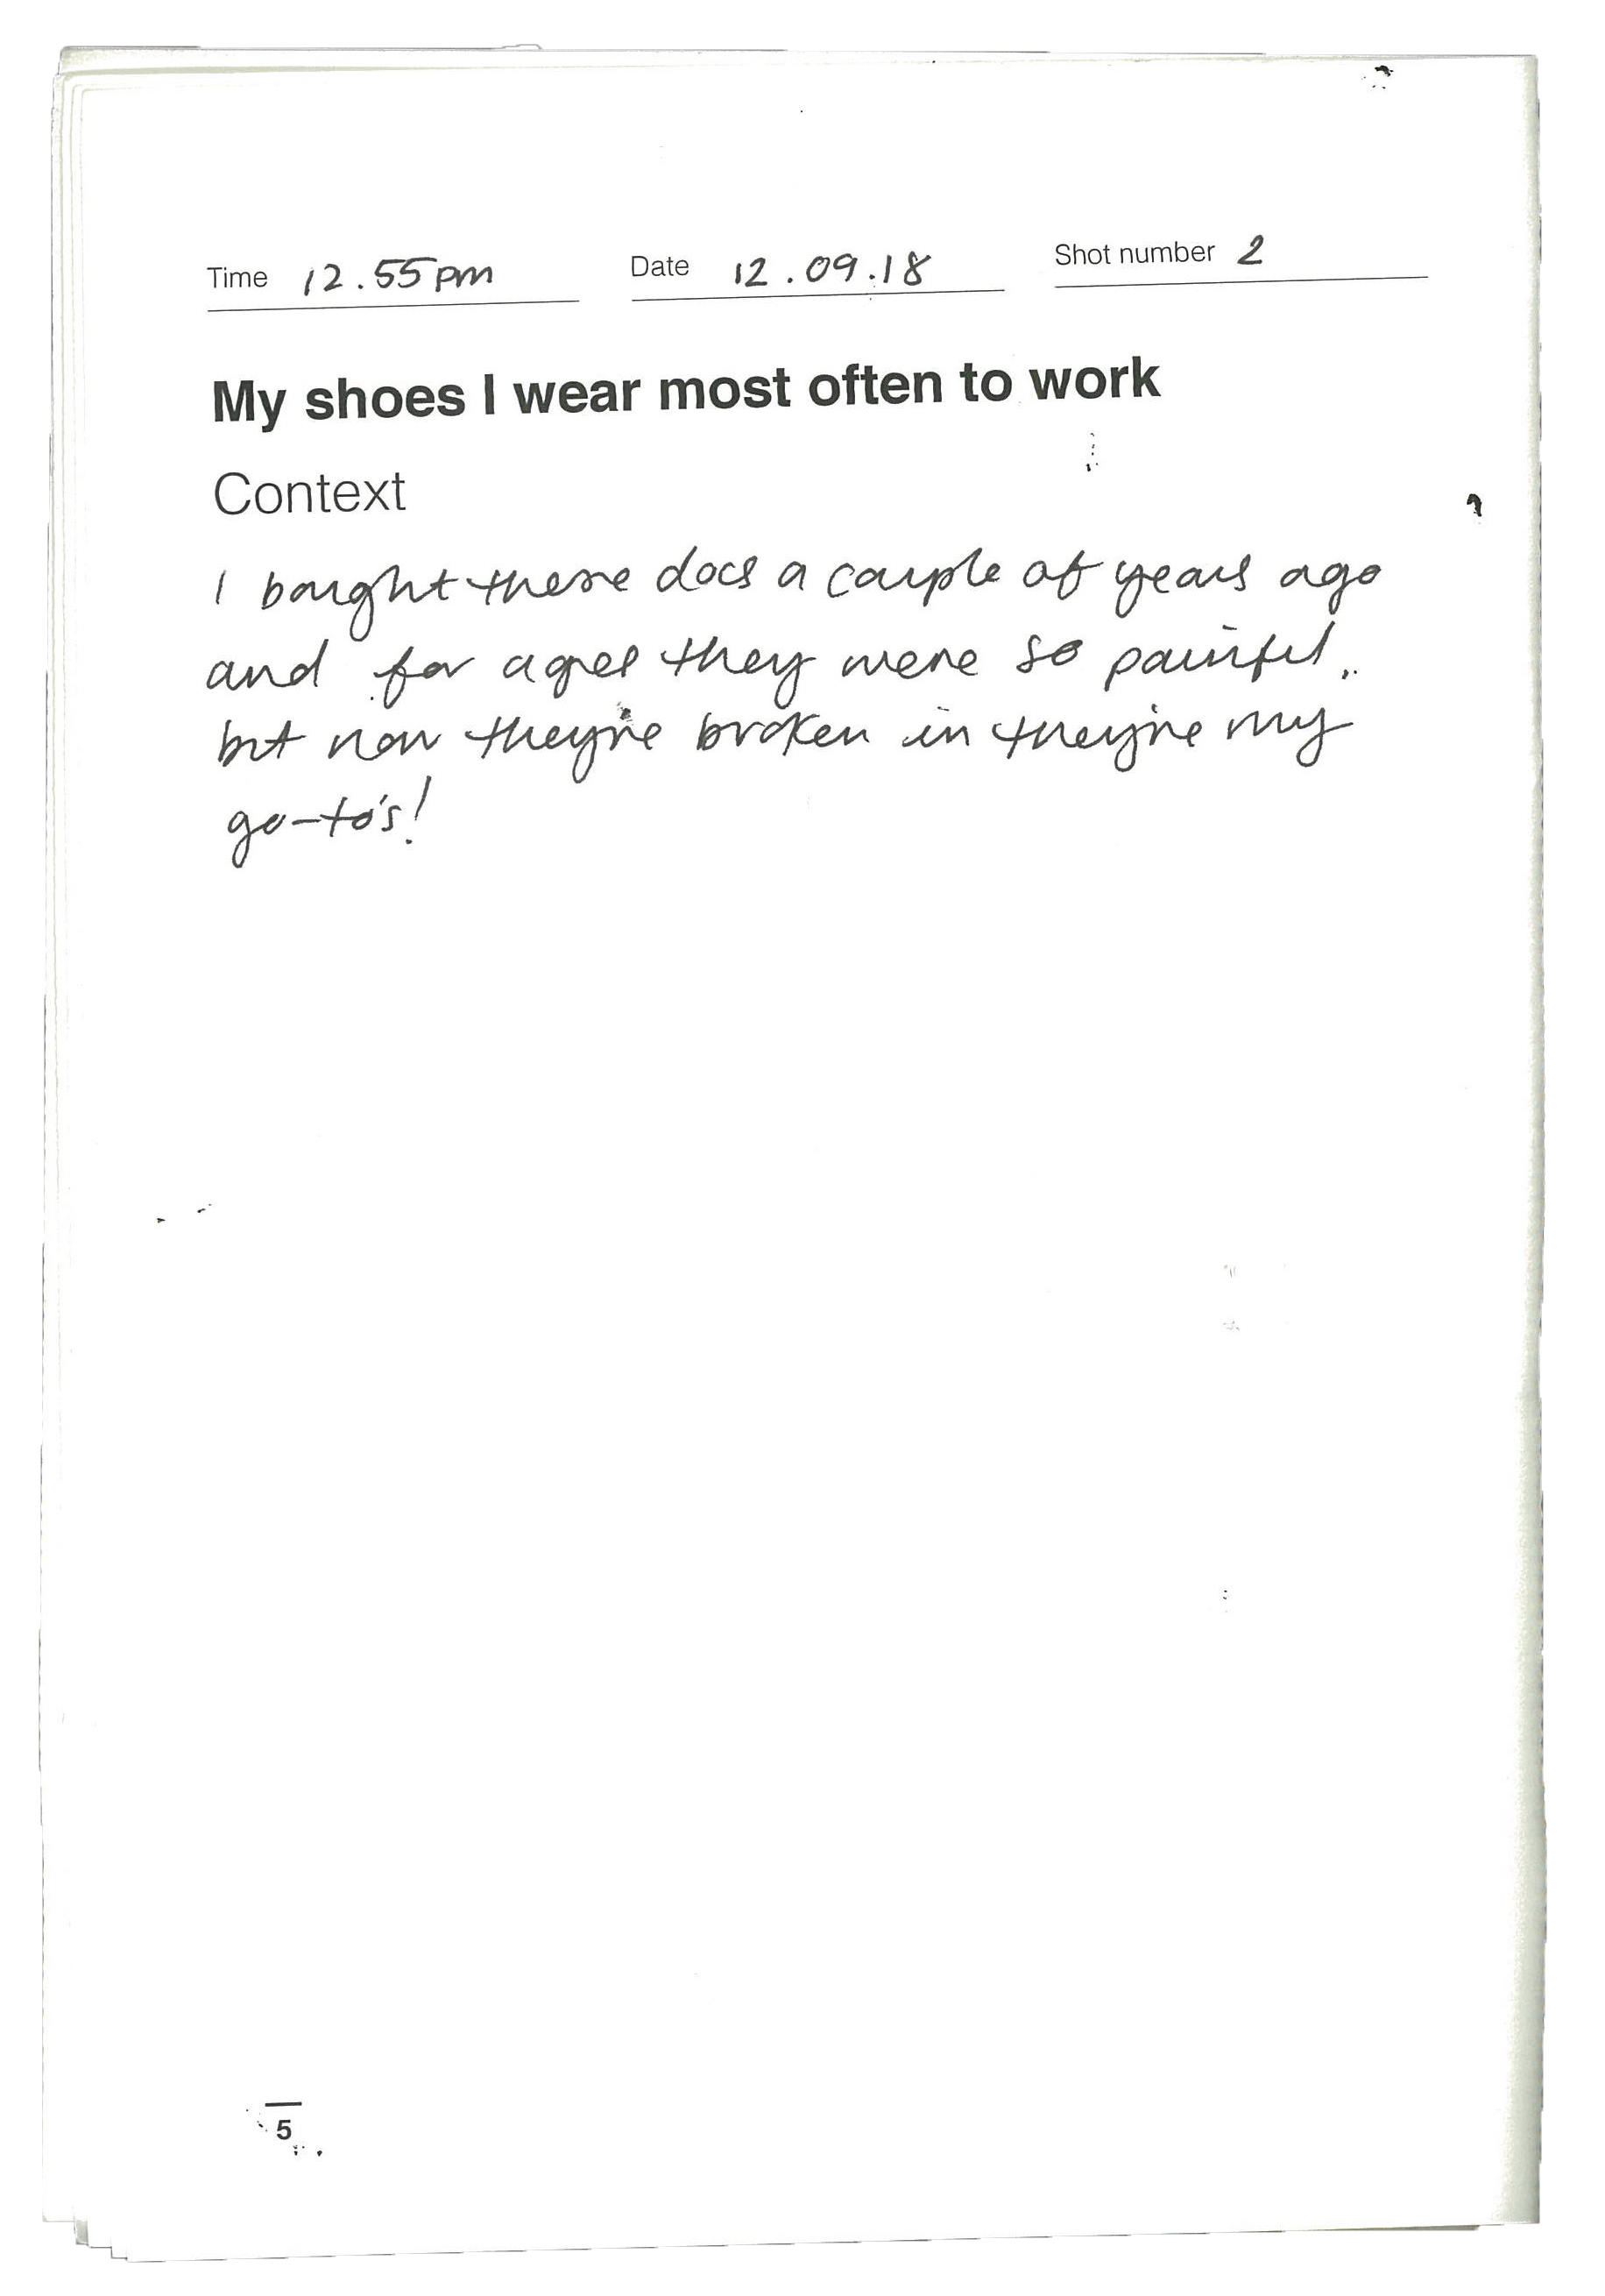 Time 12.55pm Date 12.09.18 Shot number 2
My shoes I wear most often to work
Context
I bought these docs a couple of years ago
and for ages they were so painful,
but now they're broken in they're my
go-to's!
5